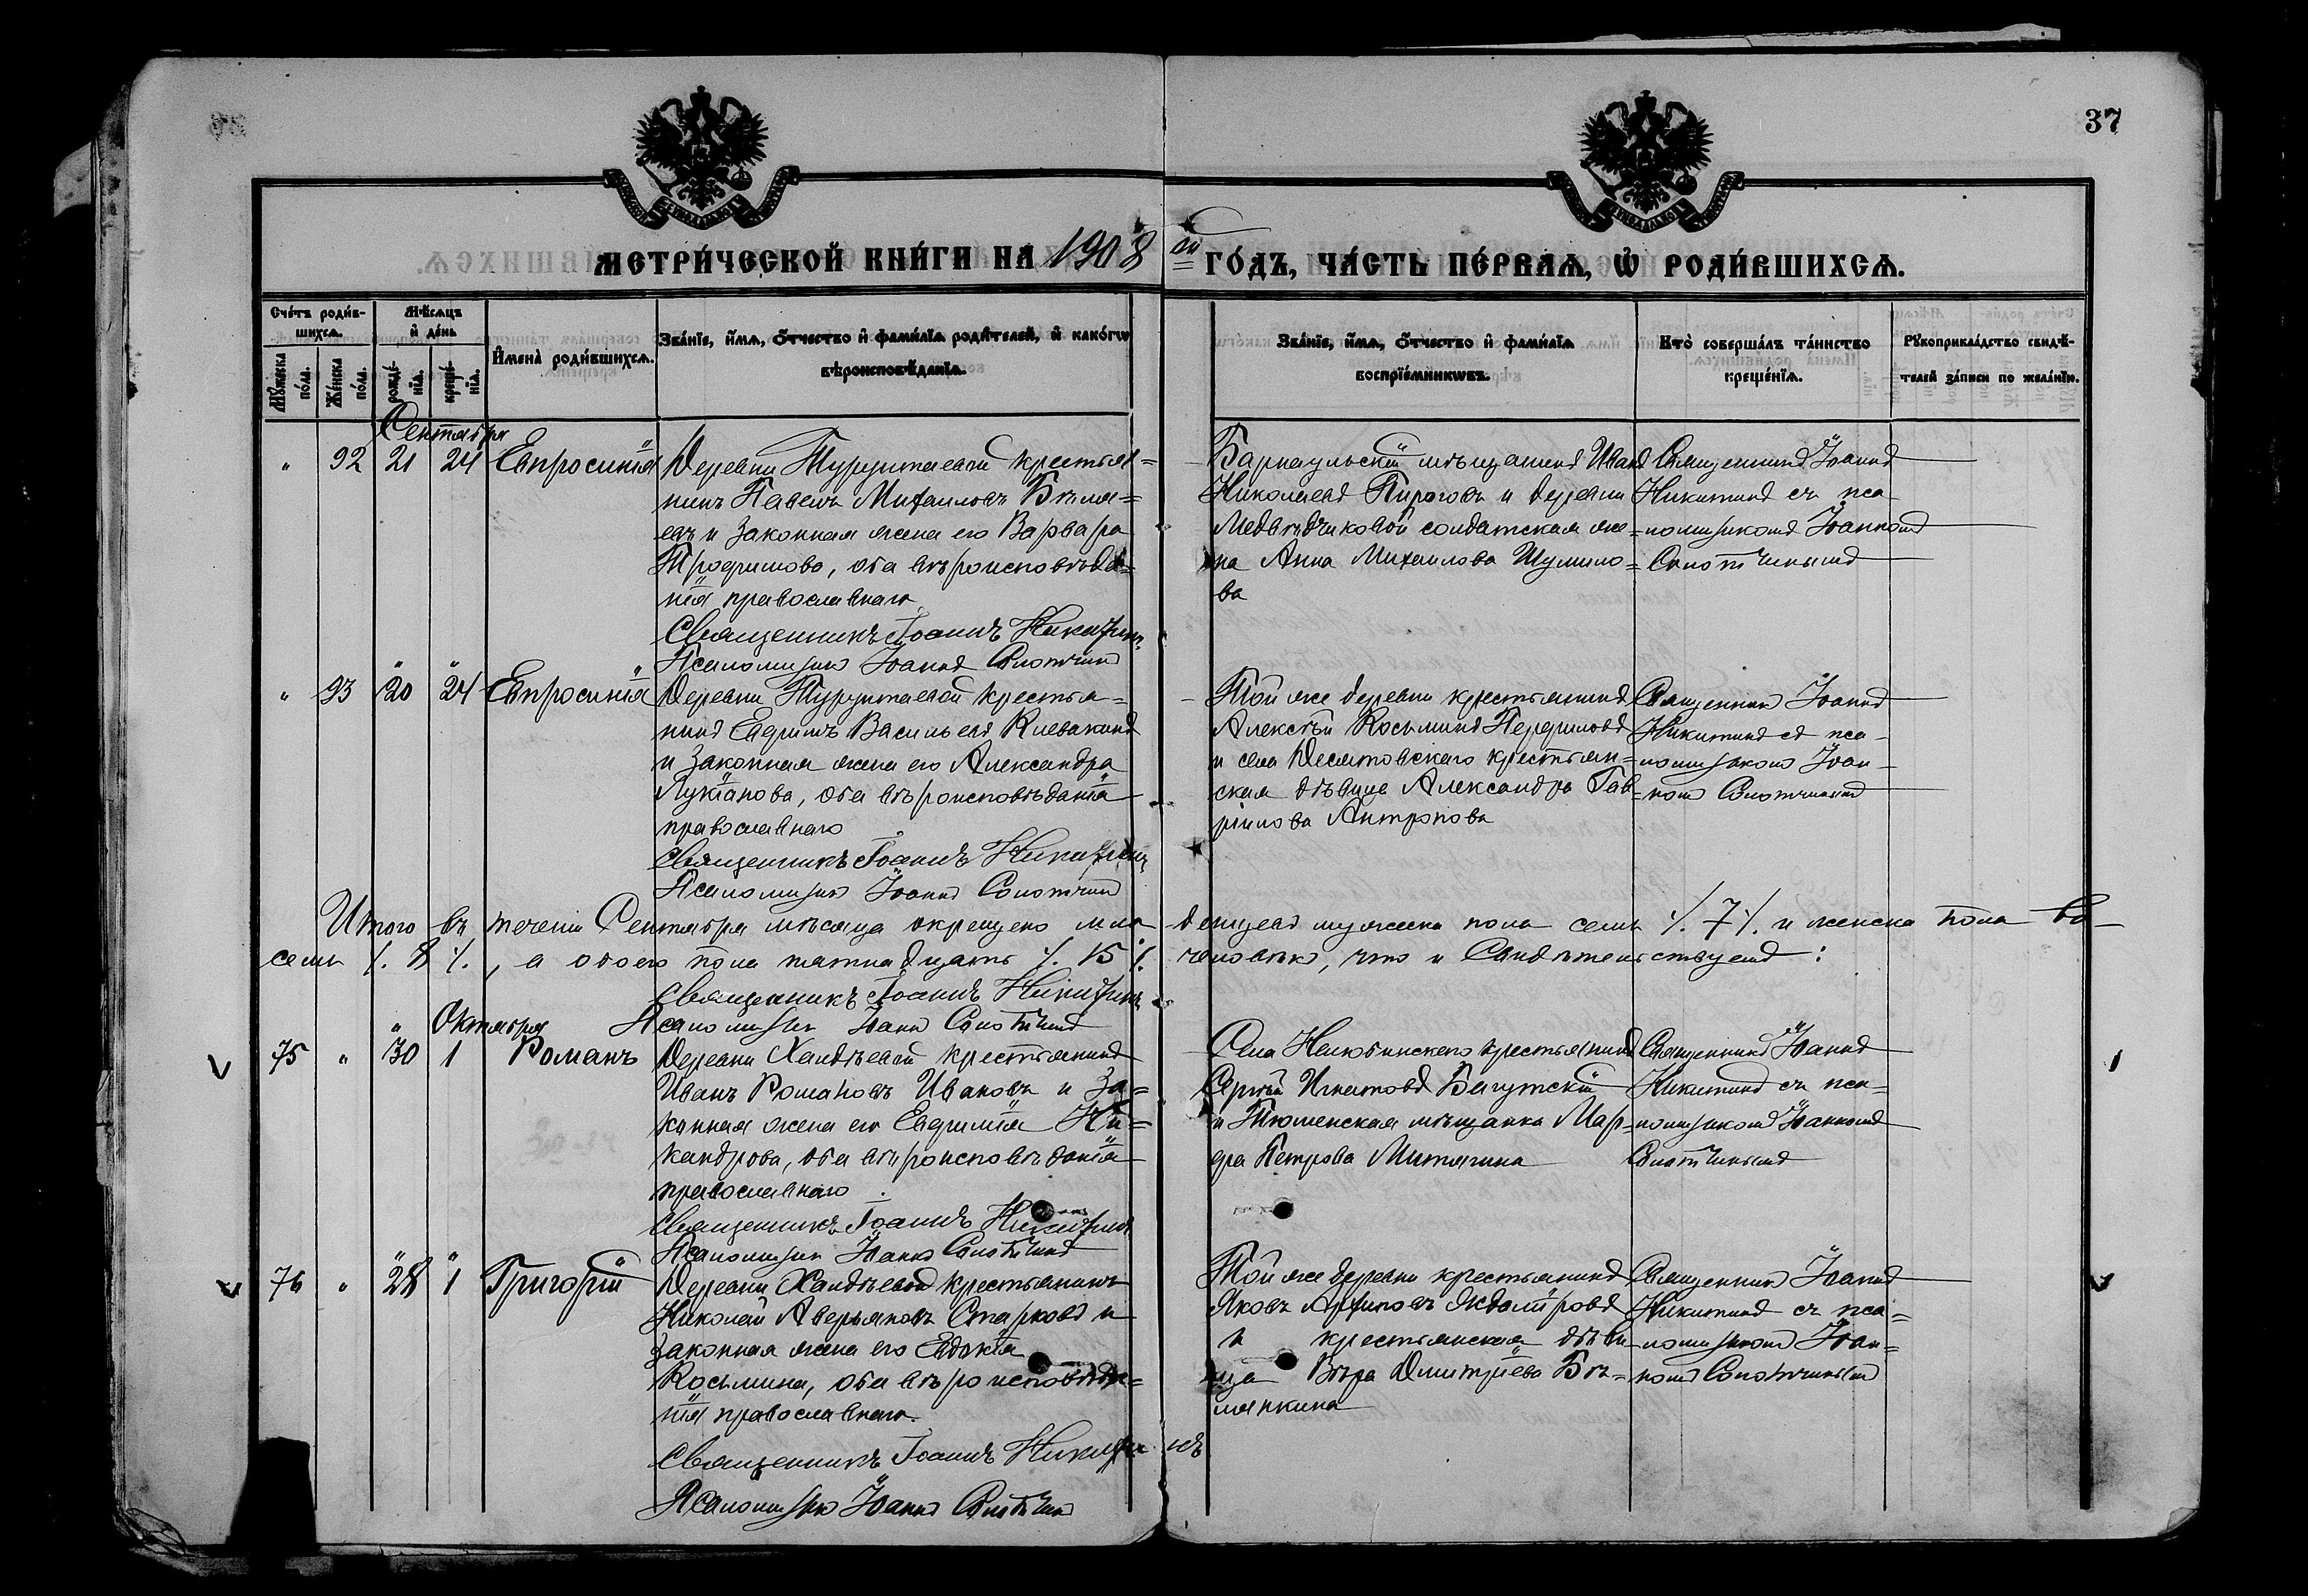 37
МЕТРИ́ЧЕСКОЙ КНИ́ГИ НА 1908 й ГО́ДЪ, ЧА́СТЬ ПЕ́РВАЯ, Ѽ РОДИ́ВШИХСЯ.
Сче́тъ роди́в-
шихся.
Мѣ́сяцъ
и҆ де́нь
Мꙋ́жеска по́ла.
Же́нска по́ла.
рожде́-
нїѧ.
креще́-
нїѧ.
И҆мена̀ роди́вшихся.
Зва́нїе, и҆́мя, ѻ҆́тчество и҆ фами́лїя роди́телей, и҆ како́гѡ
вѣроисповѣ́данїя.
Зва́нїе, и҆́мя, ѻ҆́тчество и҆ фами́лїя
воспрїе́мникѡвъ.
Кто̀ соверша́лъ та́инство
креще́нїя.
Рꙋкоприкла́дство свидѣ́-
телей за́писи по жела́нїю.
Сентября
" 92 21 24 Евпросинія
Деревни Турунтаевой крестья=
нинъ Павелъ Михаиловъ Бѣля=
евъ и законная жена его Варвара
Трофимова, оба вѣроисповѣда=
нія православнаго
Священникъ Іоаннъ Никитинъ
Псаломщикъ Іоаннъ Слотчинъ
Барнаульскій мѣщанинъ Иванъ
Николаевъ Пироговъ и деревни
Медвѣдчиковой солдатская же=
на Анна Михаилова Шумило=
ва
Священникъ Іоаннъ
Никитинъ съ пса-
ломщикомъ Іоанномъ
Слотчинымъ
" 93 20 24 Евпросинія
Деревни Турунтаевой крестья=
нинъ Ефимъ Васильевъ Клевакинъ
и законная жена его Александра
Лукіанова, оба вѣроисповѣданія
православнаго
Священникъ Іоаннъ Никитинъ
Псаломщикъ Іоаннъ Слотчинъ
Той же деревни крестьянинъ
Алексѣй Косьминъ Перфиловъ
и села Десятовскаго крестьян=
ская дѣвица Александра Гав=
рілова Антропова
Священникъ Іоаннъ
Никитинъ съ пса-
ломщикомъ Іоан-
номъ Слотчинымъ
Итого въ теченіи Сентября мѣсяца окрещено мла-денцевъ мужеска пола семь ./. 7 ./. и женска пола во-
семь ./. 8 ./., а обоего пола пятнадцать ./. 15 ./. человѣкъ, что и свидѣтельствуемъ:
Священникъ Іоаннъ Никитинъ
Псаломщикъ Іоаннъ Слотчинъ
" Октября
75 " 30 1 Романъ
Деревни Халдѣевой крестьянинъ
Иванъ Романовъ Ивановъ и за=
конная жена его Евфимія Ни=
кандрова, оба вѣроисповѣданія
православнаго.
Священникъ Іоаннъ Никитинъ
Псаломщикъ Іоаннъ Слотчинъ
Села Нелюбинскаго крестьянинъ
Сергѣй Игнатовъ Багутскій
и Тюменская мѣщанка Мар-
фа Петрова Митягина
Священникъ Іоаннъ
Никитинъ съ пса-
ломщикомъ Іоанномъ
Слотчинымъ
76 " 28 1 Григорій
Деревни Халдѣевой крестьянинъ
Николай Аверьяновъ Старковъ и
законная жена его Евдокія
Косьмина, оба вѣроисповѣда=
нія православнаго.
Священникъ Іоаннъ Никитинъ
Псаломщикъ Іоаннъ Слотчинъ
Той же деревни крестьянинъ
Яковъ
и крестьянская дѣви-
ца Вѣра Дмитріева Бѣ=
лянкина
Священникъ Іоаннъ
Никитинъ съ пса=
ломщикомъ Іоан=
номъ Слотчинымъ